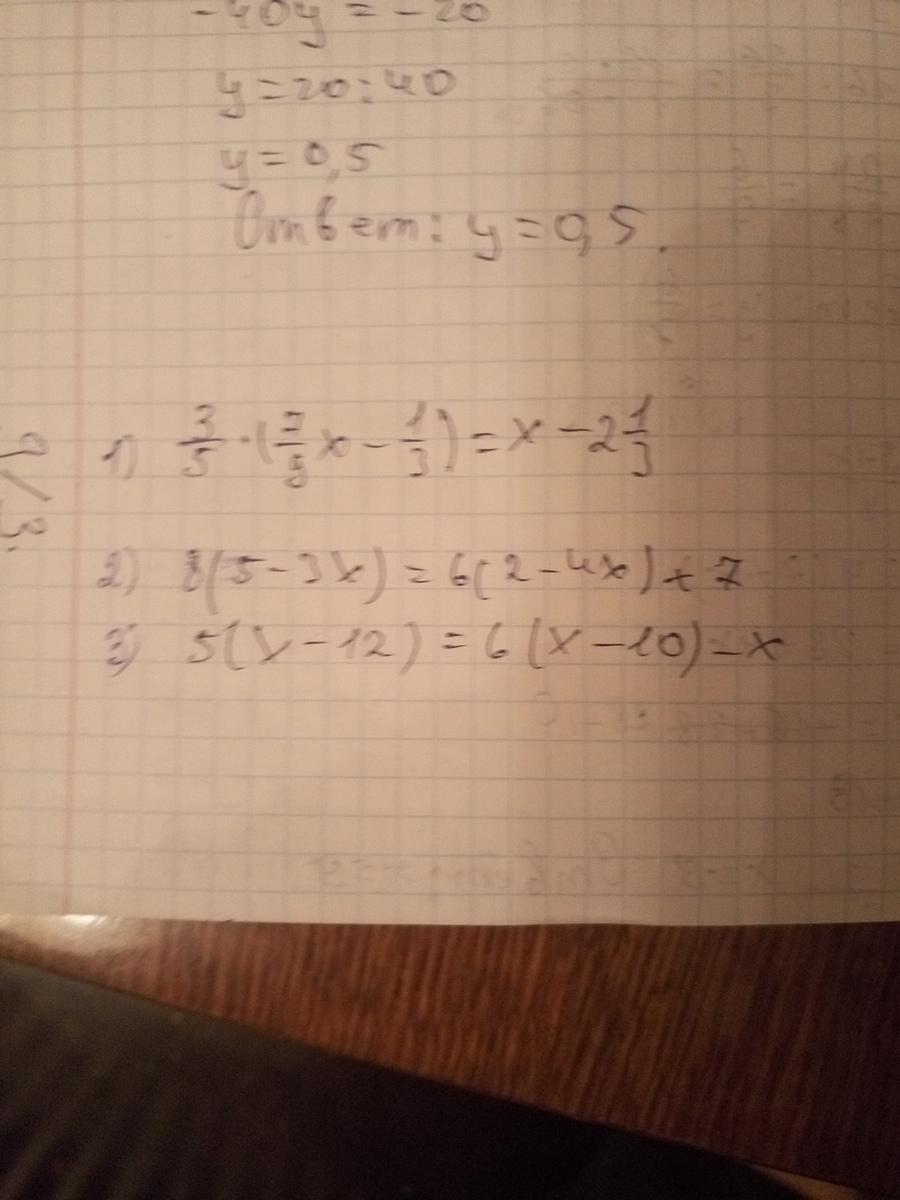 -40y = -20
y = 20 : 40
y = 0,5
Ответ: y = 0,5.
1) 3/5 · (7/9x - 1/3) = x - 2 1/3
2) 8(5 - 3x) = 6(2 - 4x) + 7
3) 5(x - 12) = 6(x - 10) - x